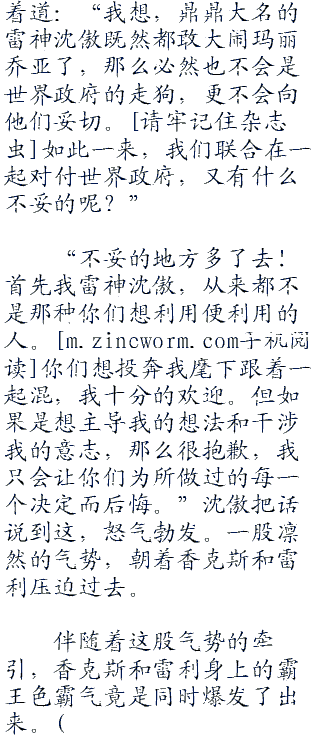 着道：“我想，鼎鼎大名的
雷神沈傲既然都敢大闹玛丽
乔亚了，那么必然也不会是
世界政府的走狗，更不会向
他们妥切。[请牢记住杂志
虫]如此一来，我们联合在一
起对付世界政府，又有什么
不妥的呢？”
“不妥的地方多了去！
首先我雷神沈傲，从来都不
是那种你们想利用便利用的
人。[m.zincworm.com手机阅
读]你们想投奔我麾下跟着一
起混，我十分的欢迎。但如
果是想主导我的想法和干涉
我的意志，那么很抱歉，我
只会让你们为所做过的每一
个决定而后悔。”沈傲把话
说到这，怒气勃发。一股凛
然的气势，朝着香克斯和雷
利压迫过去。
伴随着这股气势的牵
引，香克斯和雷利身上的霸
王色霸气竟是同时爆发了出
来。（